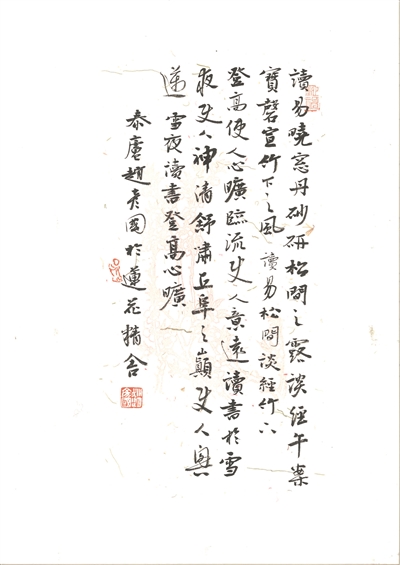 讀易曉窓丹砂研松間之露談經午案
寶磬宣竹下之風 讀易松間談經竹下
登高使人心曠臨流使人意遠讀書於雪
夜使人神清舒嘯丘阜之巔使人興
邁 雪夜讀書登高心曠
泰廬趙 國於蓮花精舍